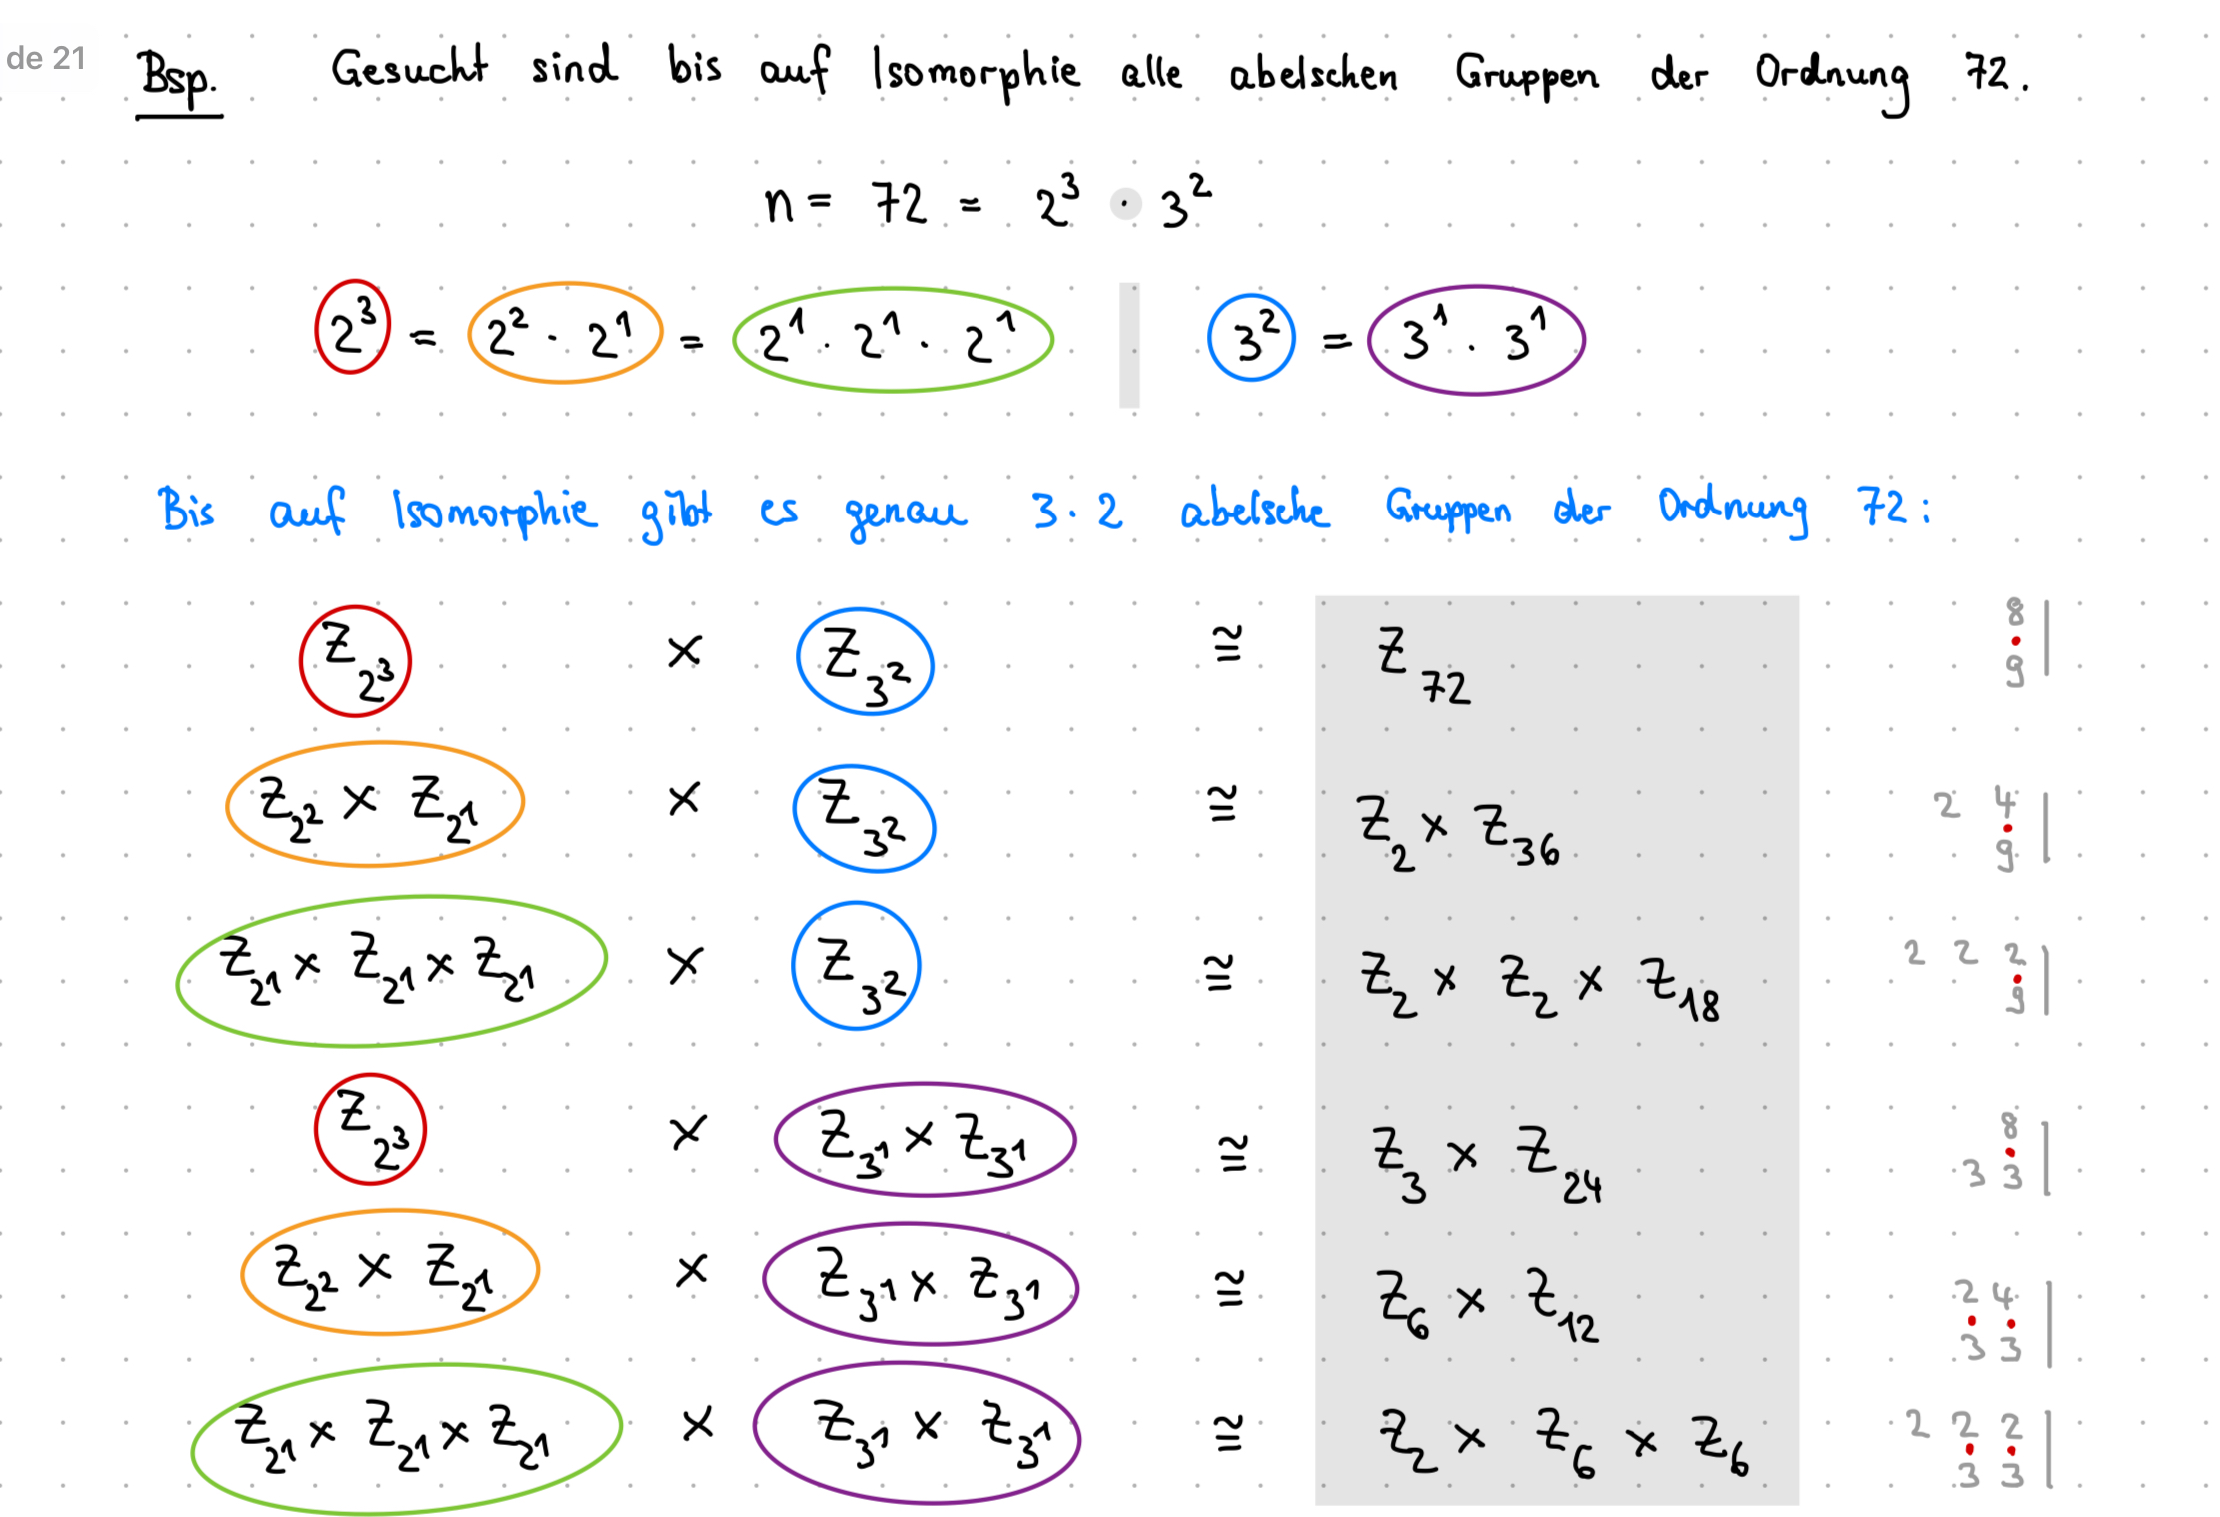 de 21
Bsp. Gesucht sind bis auf Isomorphie alle abelschen Gruppen der Ordnung 72.
n = 72 = 2³ · 3²
2³ = 2² · 2¹ = 2¹ · 2¹ · 2¹ | 3² = 3¹ · 3¹
Bis auf Isomorphie gibt es genau 3·2 abelsche Gruppen der Ordnung 72:
Z_{2³} × Z_{3²} ≅ Z_{72} 8 · 9 |
Z_{2²} × Z_{2¹} × Z_{3²} ≅ Z_2 × Z_{36} 2 4 · 9 |
Z_{2¹} × Z_{2¹} × Z_{2¹} × Z_{3²} ≅ Z_2 × Z_2 × Z_{18} 2 2 2 · 9 |
Z_{2³} × Z_{3¹} × Z_{3¹} ≅ Z_3 × Z_{24} 8 · 3 3 |
Z_{2²} × Z_{2¹} × Z_{3¹} × Z_{3¹} ≅ Z_6 × Z_{12} 2 4 · · 3 3 |
Z_{2¹} × Z_{2¹} × Z_{2¹} × Z_{3¹} × Z_{3¹} ≅ Z_2 × Z_6 × Z_6 2 2 2 · · 3 3 |